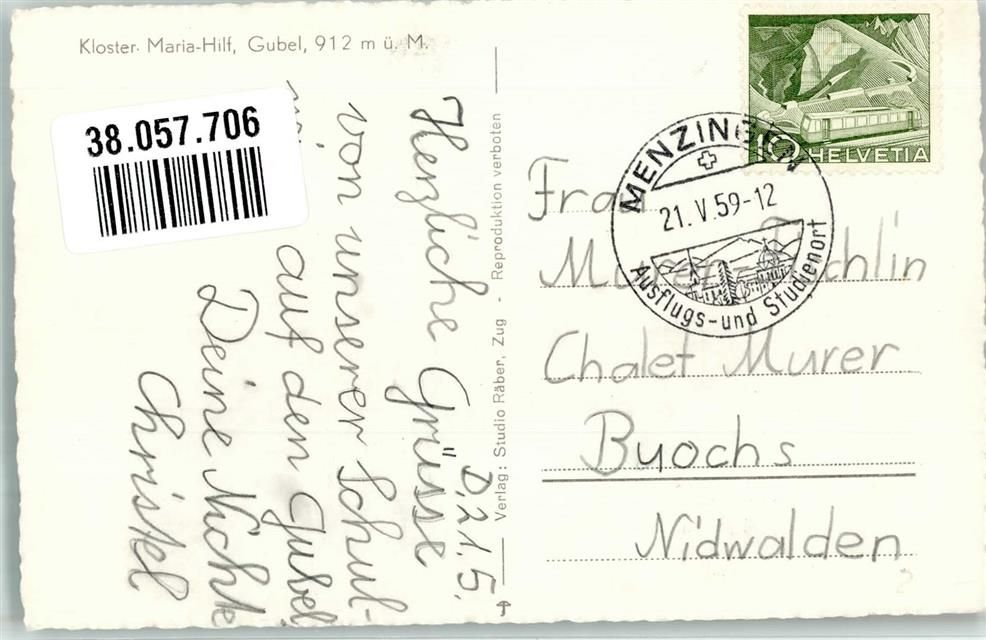 Kloster Maria-Hilf, Gubel, 912 m ü. M.
38.057.706
D, 21. 5.
Herzliche Grüsse
von unserer Schul-
auf den Gubel
Deine Nichte
Christel
Verlag: Studio Räber, Zug - Reproduktion verboten
10 HELVETIA
MENZINGEN
21.V.59-12
Ausflugs-und Studienort
Frau
Murer
Chalet Murer
Buochs
Nidwalden